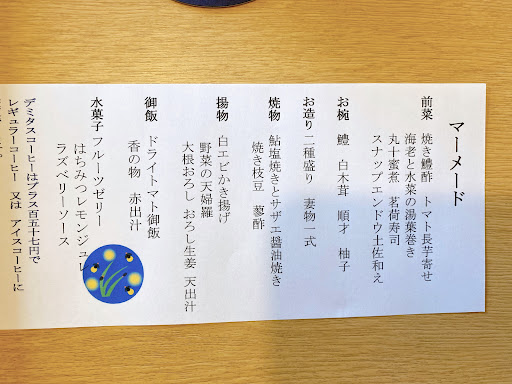 マーメード
前菜　焼き鱧酢　トマト長芋寄せ
海老と水菜の湯葉巻き
丸十蜜煮　茗荷寿司
スナップエンドウ土佐和え
お椀　鱧　白木茸　順才　柚子
お造り二種盛り　妻物一式
焼物　鮎塩焼きとサザエ醤油焼き
焼き枝豆　蓼酢
揚物　白エビかき揚げ
野菜の天婦羅
大根おろし　おろし生姜　天出汁
御飯　ドライトマト御飯
香の物　赤出汁
水菓子　フルーツゼリー
はちみつレモンジュレ
ラズベリーソース
デミタスコーヒーはプラス百五十七円で
レギュラーコーヒー　又は　アイスコーヒーに